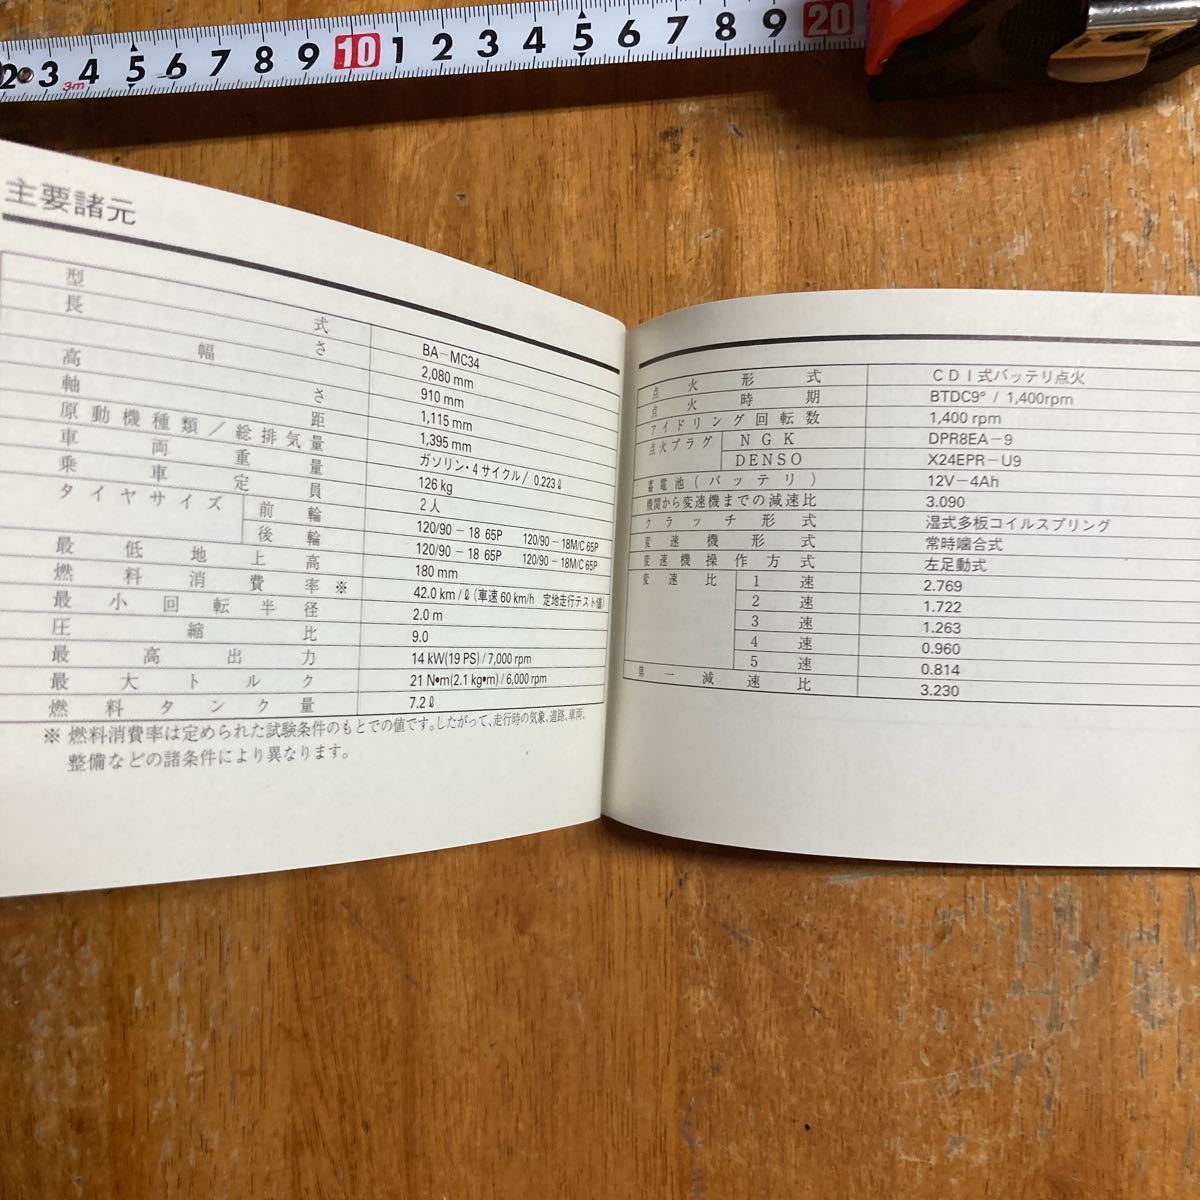 2 3 4 5 6 7 8 9 10 1 2 3 4 5 6 7 8 9 20
3m
主要諸元
型式 BA-MC34
長さ 2,080 mm
幅 910 mm
高さ 1,115 mm
軸距 1,395 mm
原動機種類/総排気量 ガソリン・4サイクル/0.223ℓ
車両重量 126 kg
乗車定員 2人
タイヤサイズ 前輪 120/90-18 65P 120/90-18M/C 65P
後輪 120/90-18 65P 120/90-18M/C 65P
最低地上高 180 mm
燃料消費率※ 42.0 km/ℓ (車速60 km/h 定地走行テスト値)
最小回転半径 2.0 m
圧縮比 9.0
最高出力 14 kW(19 PS)/7,000 rpm
最大トルク 21 N•m(2.1 kg•m)/6,000 rpm
燃料タンク量 7.2ℓ
※ 燃料消費率は定められた試験条件のもとでの値です。したがって、走行時の気象、道路、車両、
整備などの諸条件により異なります。
点火形式 CDI式バッテリ点火
点火時期 BTDC9° / 1,400rpm
アイドリング回転数 1,400 rpm
点火プラグ NGK DPR8EA-9
DENSO X24EPR-U9
蓄電池(バッテリ) 12V-4Ah
機関から変速機までの減速比 3.090
クラッチ形式 湿式多板コイルスプリング
変速機形式 常時噛合式
変速機操作方式 左足動式
変速比 1速 2.769
2速 1.722
3速 1.263
4速 0.960
5速 0.814
第一減速比 3.230